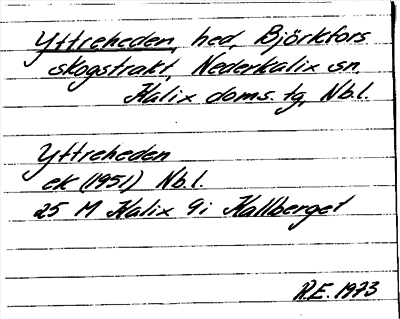 Yttreheden, hed, Björkfors
skogstrakt, Nederkalix sn,
Kalix doms. tg, Nb.l.
Yttreheden
ek (1951) Nb.l.
25 M Kalix 9i Kallberget
R.E. 1973